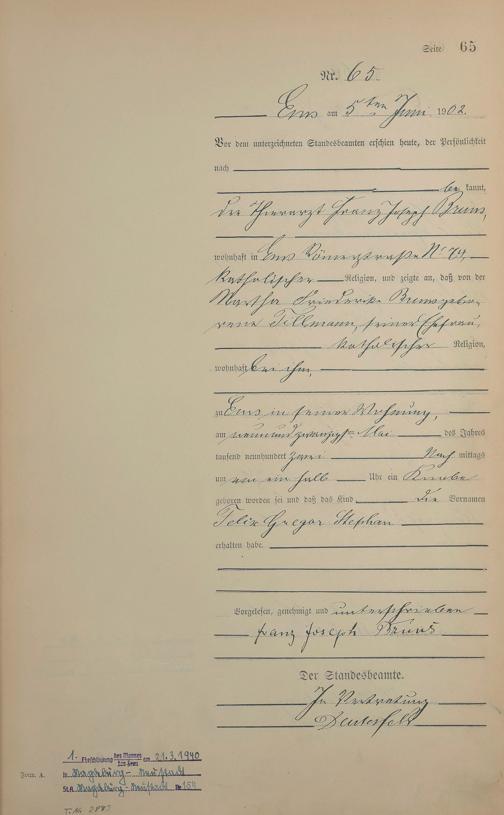 Seite 65
Nr. 65
Ems am 5ten Juni 1902.
Vor dem unterzeichneten Standesbeamten erschien heute, der Persönlichkeit
nach
be kannt,
der Thierarzt Franz Joseph Bruns,
wohnhaft in Ems Römerstraße No 79,
katholischer Religion, und zeigte an, daß von der
Martha Friederike Bruns gebo-
rene Tillmann, seiner Ehefrau,
katholischer Religion,
wohnhaft bei ihm,
zu Ems in seiner Wohnung,
am neunundzwanzigsten Mai des Jahres
tausend neunhundert zwei Nach mittags
um ein halb Uhr ein Knabe
geboren worden sei und daß das Kind die Vornamen
Felix Gregor Stephan
erhalten habe.
Vorgelesen, genehmigt und unterschrieben
Franz Joseph Bruns
Der Standesbeamte.
In Vertretung
1. Eheschließung des Mannes am 21.3.1940
in Magdeburg-Neustadt
St.A. Magdeburg-Neustadt Nr. 164
Form. A.